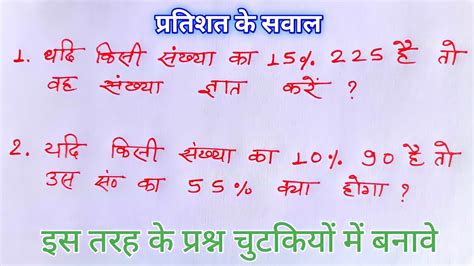 प्रतिशत के सवाल
1. यदि किसी संख्या का 15% 225 है तो
वह संख्या ज्ञात करें ?
2. यदि किसी संख्या का 10% 90 है तो
उस सं० का 55% क्या होगा ?
इस तरह के प्रश्न चुटकियों में बनावे